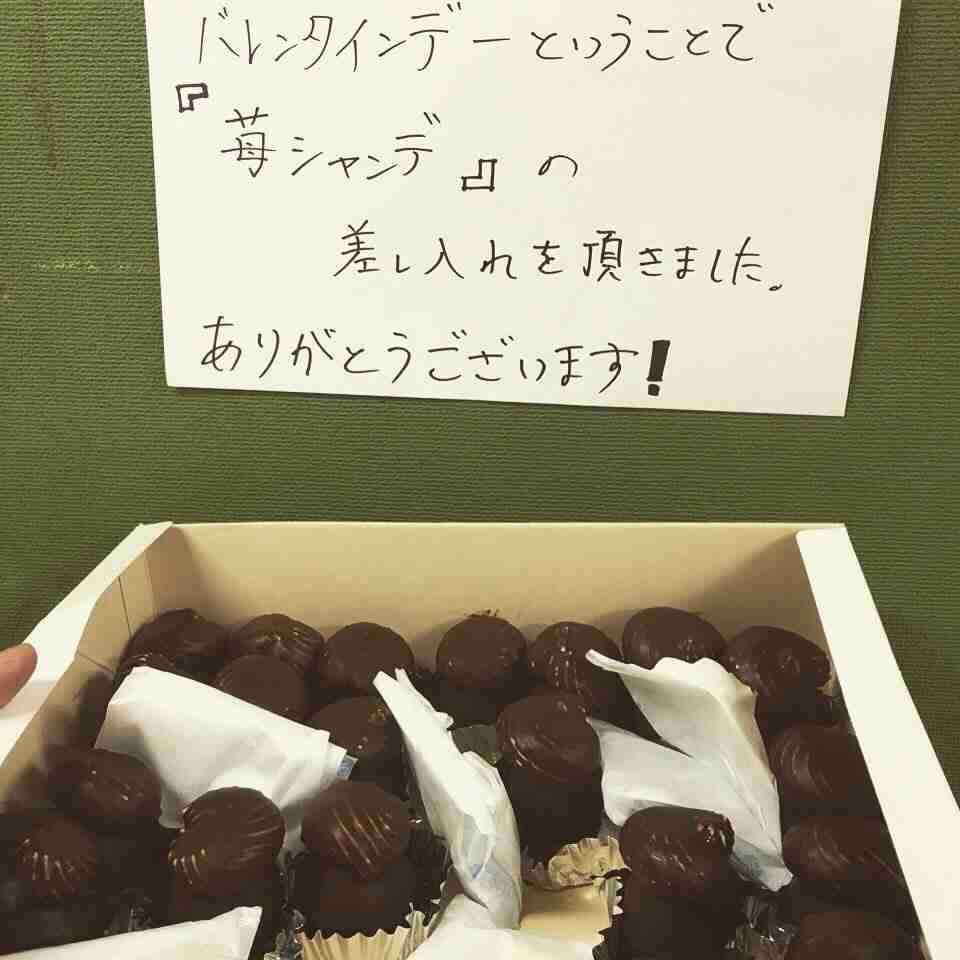 バレンタインデーということで
『苺シャンデ』の
差し入れを頂きました。
ありがとうございます!